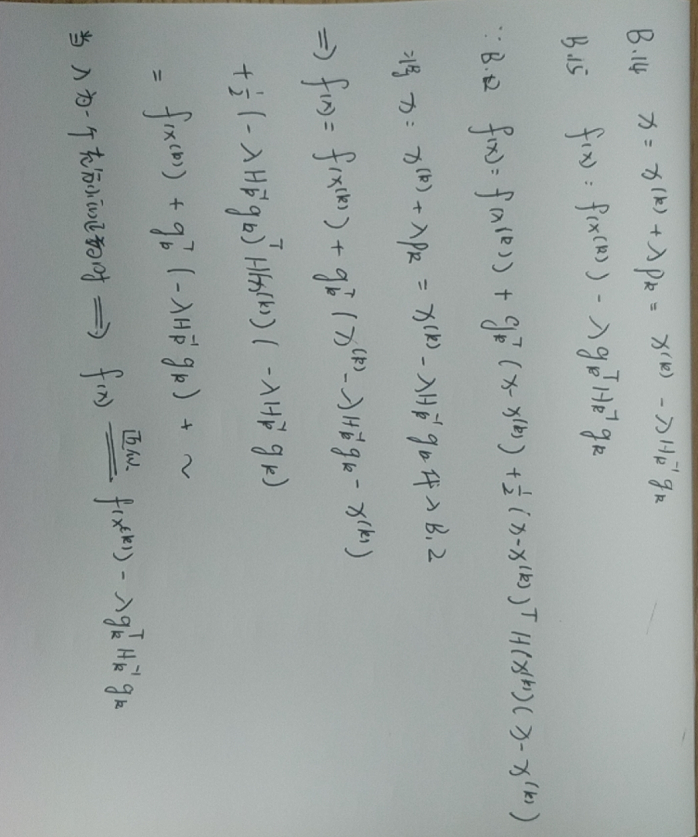 B.14 x = x^(k) + λp_k = x^(k) - λH_k^-1 g_k
B.15 f(x) = f(x^(k)) - λ g_k^T H_k^-1 g_k
∵ B.2 f(x) = f(x^(k)) + g_k^T (x - x^(k)) + 1/2 (x - x^(k))^T H(x^(k)) (x - x^(k))
x = x^(k) + λp_k = x^(k) - λH_k^-1 g_k 代入 B.2
⇒ f(x) = f(x^(k)) + g_k^T (x^(k) - λH_k^-1 g_k - x^(k))
+ 1/2 (-λH_k^-1 g_k)^T H(x^(k)) (-λH_k^-1 g_k)
= f(x^(k)) + g_k^T (-λH_k^-1 g_k) + ~
当 λ 为一个充分小的正数时 ⇒ f(x) 近似 f(x^(k)) - λ g_k^T H_k^-1 g_k